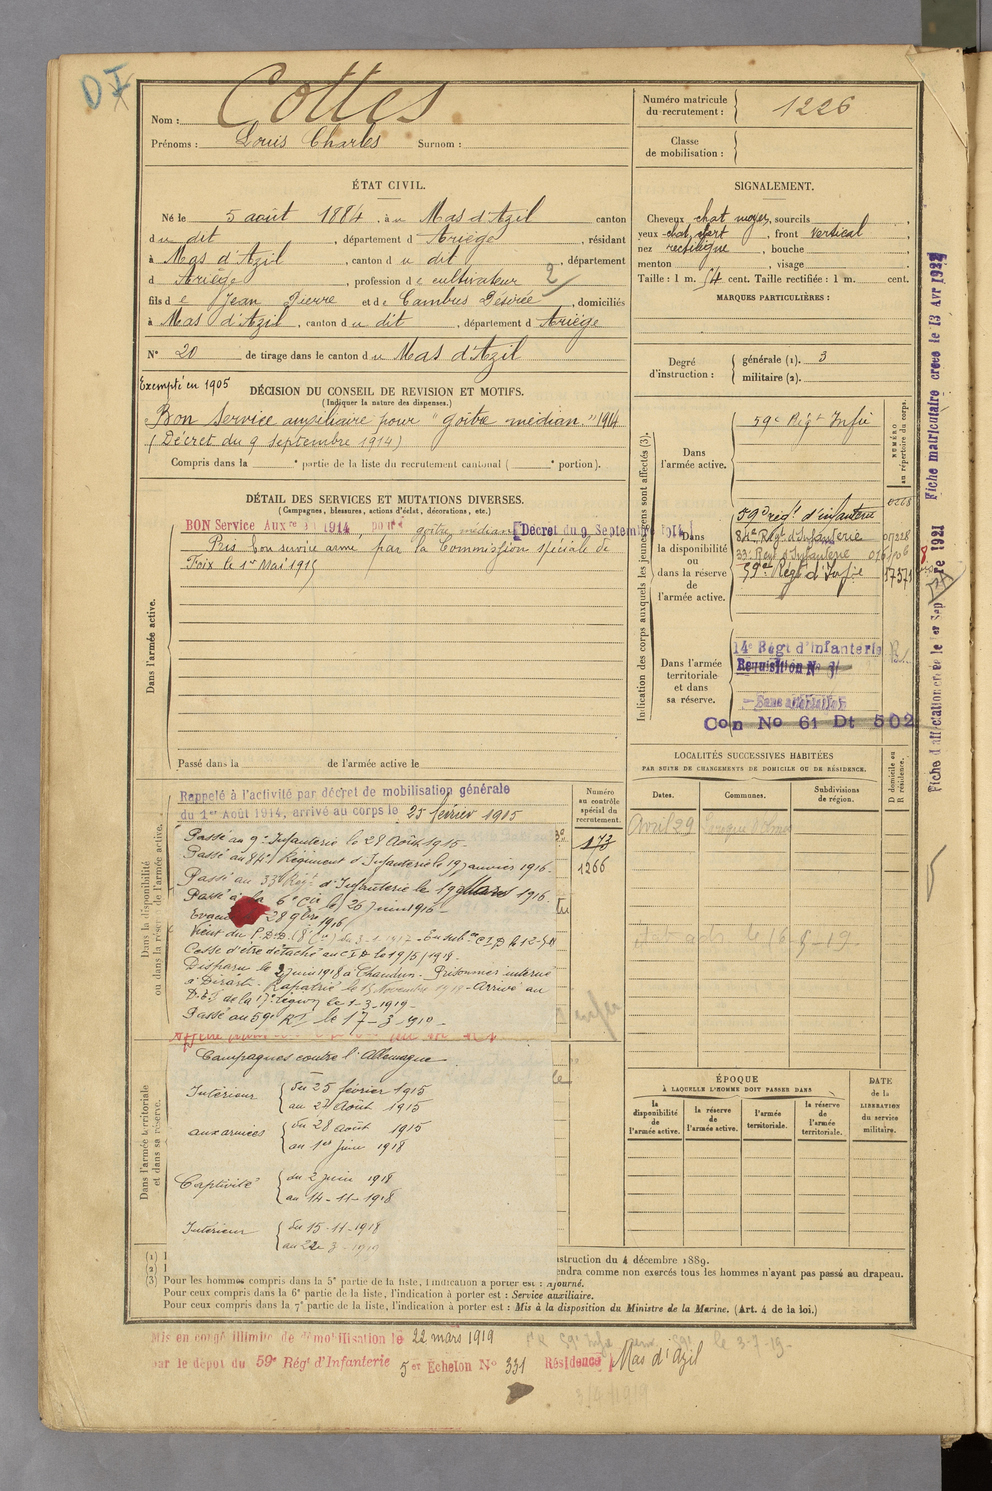 D I
Nom : Cottes
Prénoms : Louis Charles Surnom :
Numéro matricule
du recrutement : 1226
Classe
de mobilisation :
ÉTAT CIVIL.
Né le 5 août 1884, à u Mas d'Azil canton
d u dit, département d Ariège, résidant
à Mas d'Azil, canton d u dit, département
d Ariège, profession d e cultivateur 2
fils d e Jean Pierre et d e Cambus Désirée, domiciliés
à Mas d'Azil, canton d u dit, département d Ariège
N° 20 de tirage dans le canton d u Mas d'Azil
SIGNALEMENT.
Cheveux chat moyen, sourcils
yeux chat vert, front vertical,
nez rectiligne, bouche
menton, visage
Taille : 1 m. 54 cent. Taille rectifiée : 1 m. cent.
MARQUES PARTICULIÈRES :
Degré
d'instruction :
générale (1). 3
militaire (2).
Exempté en 1905
DÉCISION DU CONSEIL DE REVISION ET MOTIFS.
(Indiquer la nature des dispenses.)
Bon Service auxiliaire pour "goître médian." 1914
(Décret du 9 septembre 1914)
Compris dans la e partie de la liste du recrutement cantonal ( e portion).
DÉTAIL DES SERVICES ET MUTATIONS DIVERSES.
(Campagnes, blessures, actions d'éclat, décorations, etc.)
BON Service Aux 1914, pour goître médian [Décret du 9 Septembre 1914]
Pris bon service armé par la Commission spéciale de
Foix le 1er Mai 1915
Dans l'armée active.
Passé dans la de l'armée active le
Indication des corps auxquels les jeunes gens sont affectés (3).
NUMÉRO
au répertoire du corps.
Dans
l'armée active.
59e Régt Infie
Dans
la disponibilité
ou
dans la réserve
de
l'armée active.
59e régt d'infanterie
84e Régt d'Infanterie
33e Régt d'Infanterie
59e Régt d'Infie
Dans l'armée
territoriale
et dans
sa réserve.
14e Régt d'Infanterie
Requisition N°
Sans affectation
Con No 61 Dt 502
Fiche matriculaire créée le 13 Avr
Fiche d'affectation créée le 1er Sep 1921
Dans la disponibilité
ou dans la réserve de l'armée active.
Rappelé à l'activité par décret de mobilisation générale
du 1er Août 1914, arrivé au corps le 25 février 1915
Passé au 9e Infanterie le 28 Août 1915.
Passé au 84e Régiment d'Infanterie le 19 janvier 1916.
Passé au 33e Régt d'Infanterie le 19 Mars 1916.
Passé à la 6e Cie le 26 Juin 1916
Evacué 28 9bre 1916
Vient du
Cesse d'être détaché au C I D le 19/5/1918.
Disparu le 2 juin 1918 à Chaudun. Prisonnier interné
à Rapatrié le 15 Novembre 1918 - Arrivé au
de la 17e légion le 1-3-1919
Passé au 59e RI le 17-3-1919
Numéro
au contrôle
spécial du
recrutement.
173
1266
LOCALITÉS SUCCESSIVES HABITÉES
PAR SUITE DE CHANGEMENTS DE DOMICILE OU DE RÉSIDENCE.
Dates.
Communes.
Subdivisions
de région.
D domicile ou
R résidence.
Avril 29
le 16-5-19
Dans l'armée territoriale
et dans sa réserve.
Campagnes contre l'Allemagne
Intérieur du 25 février 1915
au 27 Août 1915
aux armées du 28 Août 1915
au 1er Juin 1918
Captivité du 2 Juin 1918
au 14-11-1918
Intérieur du 15-11-1918
au 22 3-1919
ÉPOQUE
À LAQUELLE L'HOMME DOIT PASSER DANS
la
disponibilité
de
l'armée active.
la réserve
de
l'armée active.
l'armée
territoriale.
la réserve
de
l'armée
territoriale.
DATE
de la
LIBÉRATION
du service
militaire.
(1) I nstruction du 4 décembre 1889.
(2) I endra comme non exercés tous les hommes n'ayant pas passé au drapeau.
(3) Pour les hommes compris dans la 5e partie de la liste, l'indication à porter est : Ajourné.
Pour ceux compris dans la 6e partie de la liste, l'indication à porter est : Service auxiliaire.
Pour ceux compris dans la 7e partie de la liste, l'indication à porter est : Mis à la disposition du Ministre de la Marine. (Art. 4 de la loi.)
Mis en congé illimité de démobilisation le 22 mars 1919
par le dépôt du 59e Régt d'Infanterie 5er Échelon N° 331 Résidence Mas d'Azil